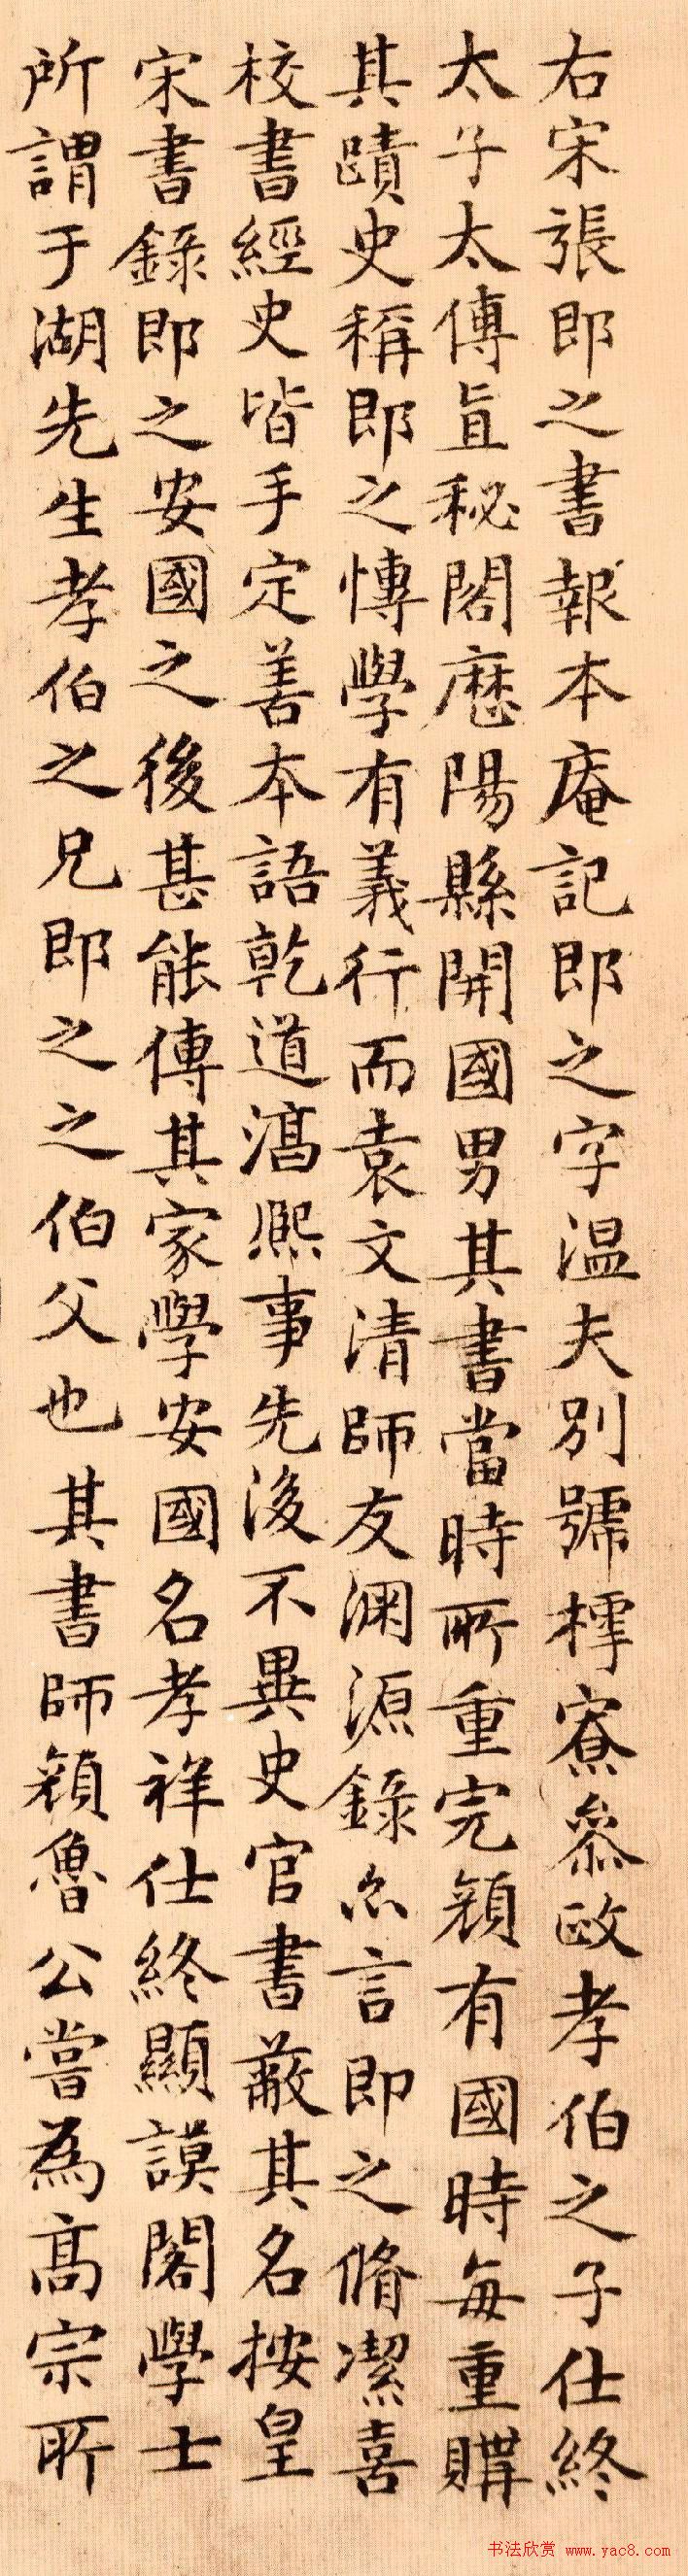 右宋張即之書報本庵記即之字温夫別號樗寮叅政孝伯之子仕終
太子太傅直秘閣歷陽縣開國男其書當時所重完顏有國時每重購
其蹟史稱即之博學有義行而袁文清師友淵源錄亦言即之脩潔喜
校書經史皆手定善本語乾道淳熙事先後不異史官書蔽其名按皇
宋書錄即之安國之後甚能傳其家學安國名孝祥仕終顯謨閣學士
所謂于湖先生孝伯之兄即之之伯父也其書師顏魯公嘗為高宗所
书法欣赏 www.yac8.com